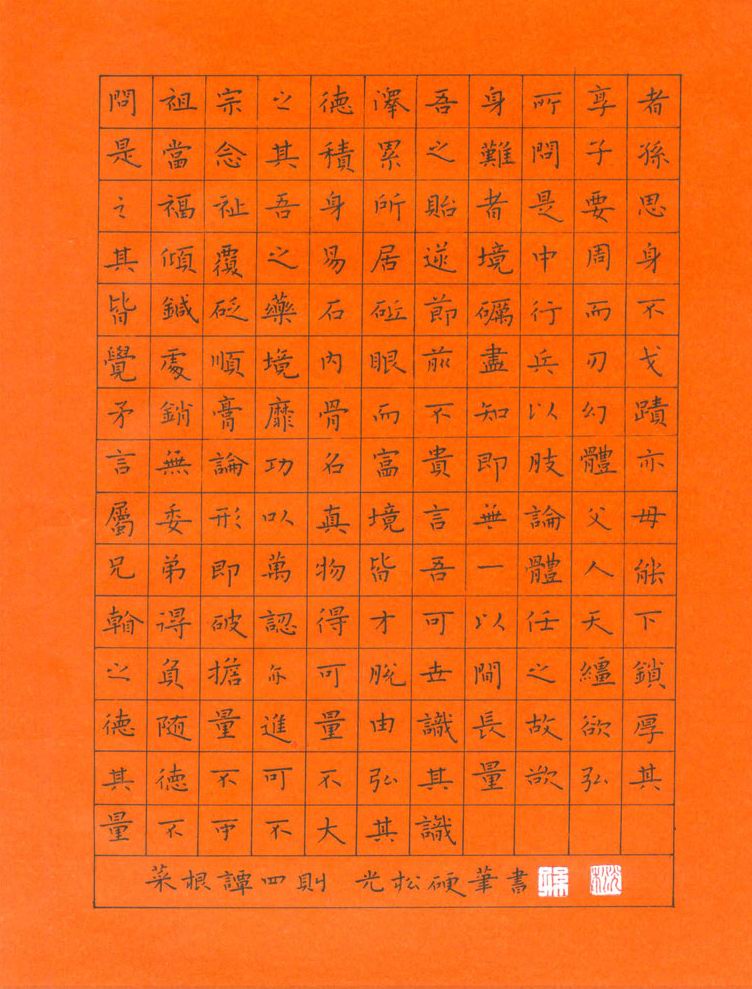 問祖宗之德澤吾身所享者
是當念其積累之難問子孫
之福祉吾身所貽者是要思
其傾覆之易居逆境中周身
皆鍼砭藥石砥節礪行而不
覺處順境內眼前盡兵刃戈
矛銷膏靡骨而不知以幻蹟
言無論功名富貴即肢體亦
屬委形以真境言無論父母
兄弟即萬物皆吾一體人能
看得破認得才可以任天下
之負擔亦可脫世間之繮鎖
德随量進量由識長故欲厚
其德不可不弘其量欲弘其
量不可不大其識
菜根譚四則 光松硬筆書